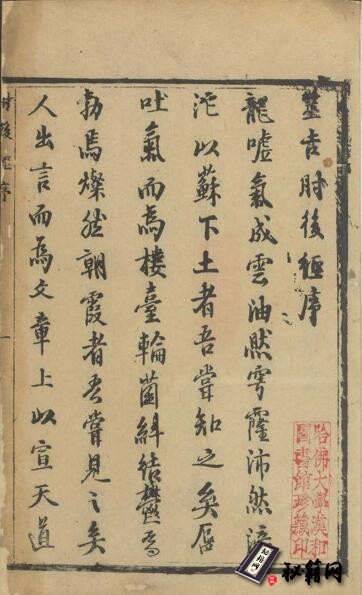 筮吉肘後經序
龍噓氣成雲油然沛然滂
沱以蘇下土者吾嘗知之矣蜃
吐氣而焉樓臺輪菌糾結欝焉
勃焉燦然朝霞者吾嘗見之矣
人出言而焉文章上以宣天道
肘後經序
哈佛大學漢和
圖書館珍藏印
秘籍网
秘籍网